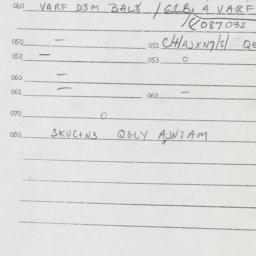 040 VARF D3M BALK / G1B1 A VARF
087032
050 — 051 CH/AJXN7/S/ QE
052 — 053 0
060 —
061 — 062 —
070 0
080 SKUC+N3 QGLY AJNZAM